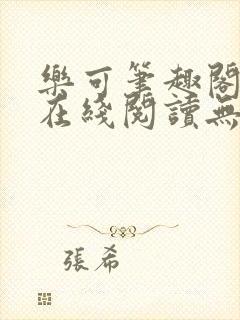 樂可筆趣閣
在綫閱讀無
張希